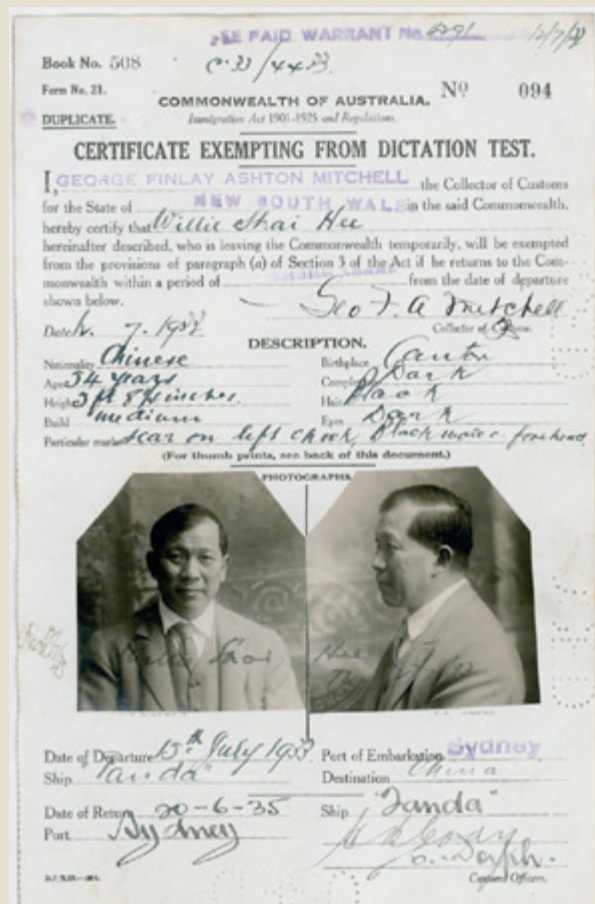 FEE PAID WARRANT No. 4291 12/7/33
Book No. 508 C.33/4433
Form No. 21.
COMMONWEALTH OF AUSTRALIA. No 094
DUPLICATE. Immigration Act 1901-1925 and Regulations.
CERTIFICATE EXEMPTING FROM DICTATION TEST.
I, GEORGE FINLAY ASHTON MITCHELL the Collector of Customs
for the State of NEW SOUTH WALES in the said Commonwealth,
hereby certify that Willie Shai Hee
hereinafter described, who is leaving the Commonwealth temporarily, will be exempted
from the provisions of paragraph (a) of Section 3 of the Act if he returns to the Com-
monwealth within a period of from the date of departure
shown below. Geo F. A Mitchell
Date 7. 1933 Collector of Customs.
DESCRIPTION.
Nationality Chinese Birthplace Canton
Age 54 years Complexion Dark
Height 5 ft inches Hair Black
Build medium Eyes Dark
Particular marks Scar on left cheek, black moles forehead
(For thumb prints, see back of this document.)
PHOTOGRAPHS.
Willie Shai Hee
Date of Departure 15th July 1933 Port of Embarkation Sydney
Ship "Tanda" Destination China
Date of Return 20-6-35 Ship "Tanda"
Port Sydney
Customs Officer.